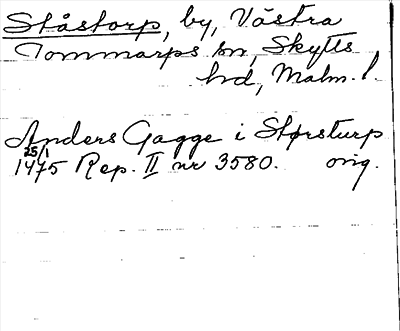 Ståstorp, by, Västra
Tommarps sn, Skytts
hd, Malm. l.
Anders Gagge i Størsturp
25/1
1475 Rep. II nr 3580. orig.